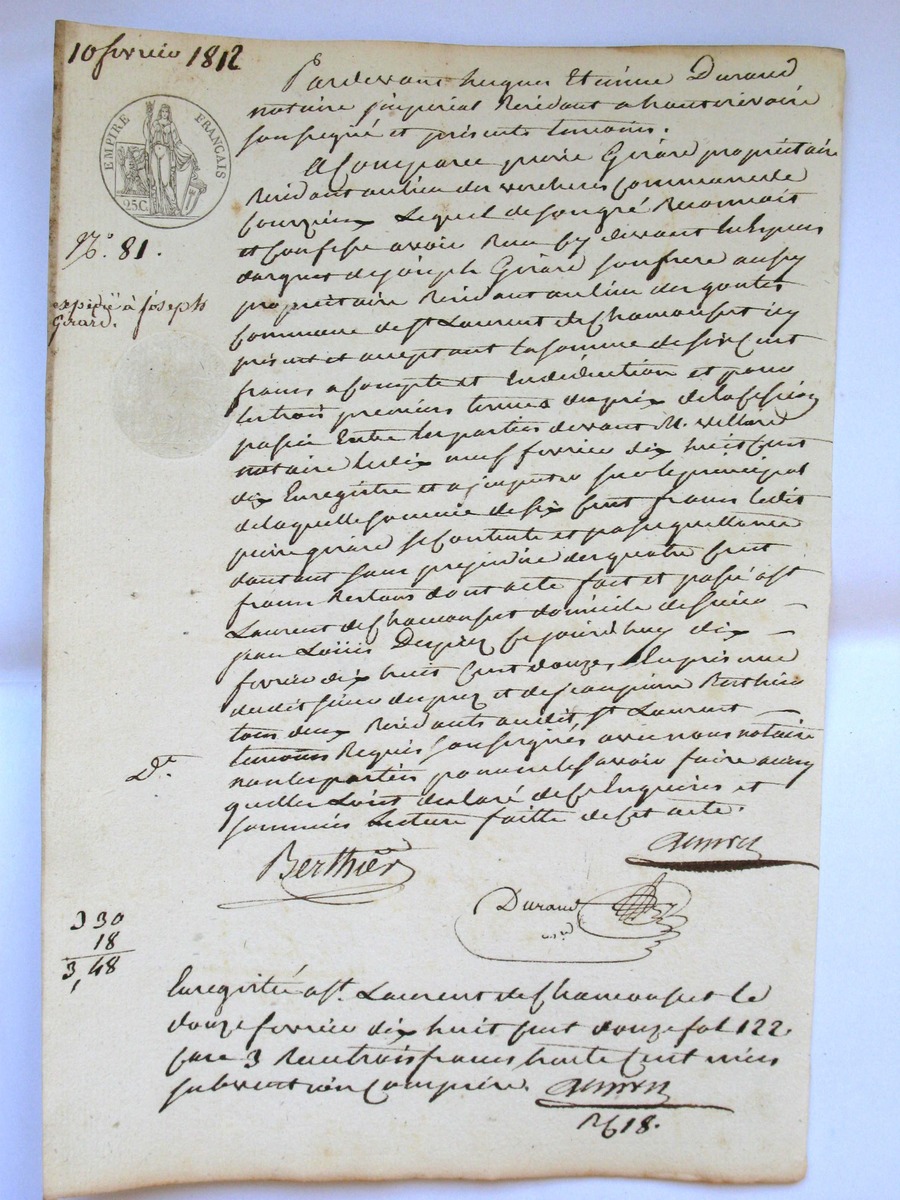 10 fevrier 1812
EMPIRE FRANÇAIS
25C
N.° 81.
expédié à Joseph
Girard.
Pardevant hugues Etienne Durand
notaire jmperial Residant a hauterivoire
soussigné et présents temoins.
A Comparu pierre Girard propriétaire
Residant au lieu des verchères Commune de
Courzieux Lequel de son gré Reconnait
et Confesse avoir Reçu cy devant les espèces
d'argent de joseph Girard son frere aussy
propriétaire Residant au lieu des gouttes
Commune de st Laurent de Chamousset icy
présent et acceptant la somme de six Cent
francs a Compte et En déduction et pour
les trois premiers termes du prix de la Cession
passée Entre les parties devant M. villard
notaire le dix neuf fevrier dix huit Cent
dix Enregistre et a jmputer sur le principal
de laquelle somme de six Cent francs ledit
pierre girard se Contente et passe quittance
d'autant sans prejudice des quatre Cent
francs Restans dont acte fait et passé a st
Laurent de Chamousset domicile de sieur
jean Louis Duprez ce jourd'huy dix
fevrier dix huit Cent douze En présence
dudit sieur duprez et de jean pierre Berthier
tous deux Residants audit st Laurent
temoins Requis soussignés avec nous notaire
non les parties pour ne le savoir faire ainsy
quelles L'ont déclaré de ce Enquises et
sommées Lecture faitte de Cet acte.
Dt.
Berthier
Durand
330
18
3,48
Enregistré a st. Laurent de Chamousset le
douze fevrier dix huit Cent douze fol 122.
case 3 Reçu trois francs trente Centimes
subvention Comprise.
18.